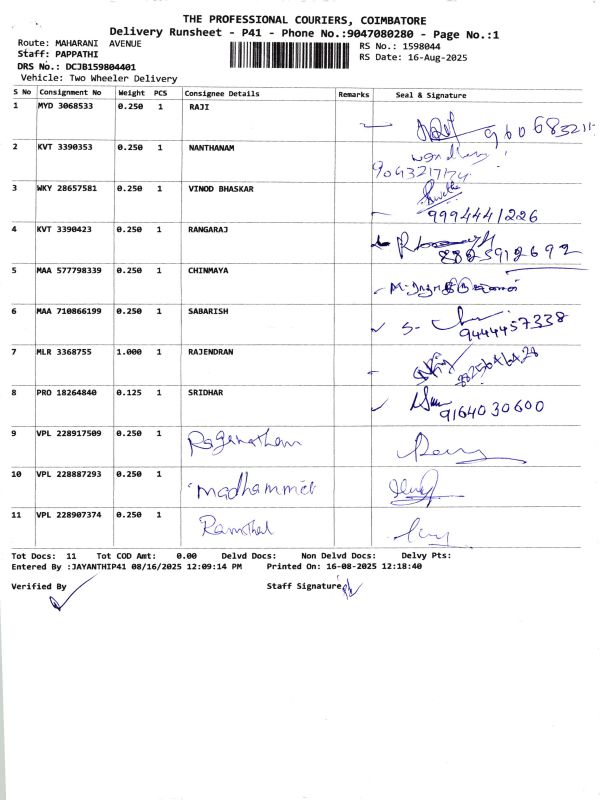 THE PROFESSIONAL COURIERS, COIMBATORE
Delivery Runsheet - P41 - Phone No.:9047080280 - Page No.:1
Route: MAHARANI AVENUE
RS No.: 1598044
Staff: PAPPATHI
RS Date: 16-Aug-2025
DRS No.: DCJB159804401
Vehicle: Two Wheeler Delivery
S No Consignment No Weight PCS Consignee Details Remarks Seal & Signature
1 MYD 3068533 0.250 1 RAJI
2 KVT 3390353 0.250 1 NANTHANAM
3 WKY 28657581 0.250 1 VINOD BHASKAR
9994441226
4 KVT 3390423 0.250 1 RANGARAJ
5 MAA 577798339 0.250 1 CHINMAYA
6 MAA 710866199 0.250 1 SABARISH
9444457338
7 MLR 3368755 1.000 1 RAJENDRAN
8 PRO 18264840 0.125 1 SRIDHAR
9164030600
9 VPL 228917509 0.250 1
10 VPL 228887293 0.250 1
11 VPL 228907374 0.250 1
Tot Docs: 11 Tot COD Amt: 0.00 Delvd Docs: Non Delvd Docs: Delvy Pts:
Entered By :JAYANTHIP41 08/16/2025 12:09:14 PM Printed On: 16-08-2025 12:18:40
Verified By Staff Signature